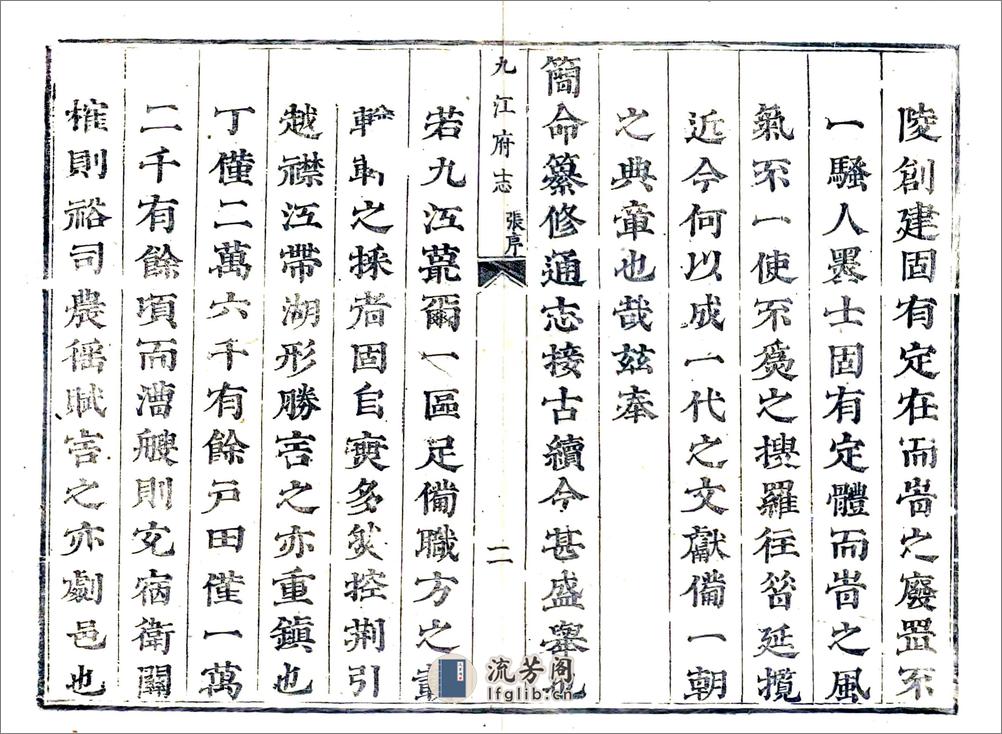 陵創建固有定在而時之廢置不
一騷人墨士固有定體而時之風
氣不一使不爲之搜羅往笥延攬
近今何以成一代之文獻備一朝
之典章也哉茲奉
簡命纂修通志接古續今甚盛舉
九江府志
張序
二
若九江蕞爾一區足備職方之
輶軒之採者固自寔多矣控荆引
越襟江帶湖形勝言之亦重鎭也
丁僅二萬六千有餘戸田僅一萬
二千有餘頃而漕艘則充兩衛關
榷則裕司農徭賦言之亦劇邑也
流芳阁
lfglib.cn